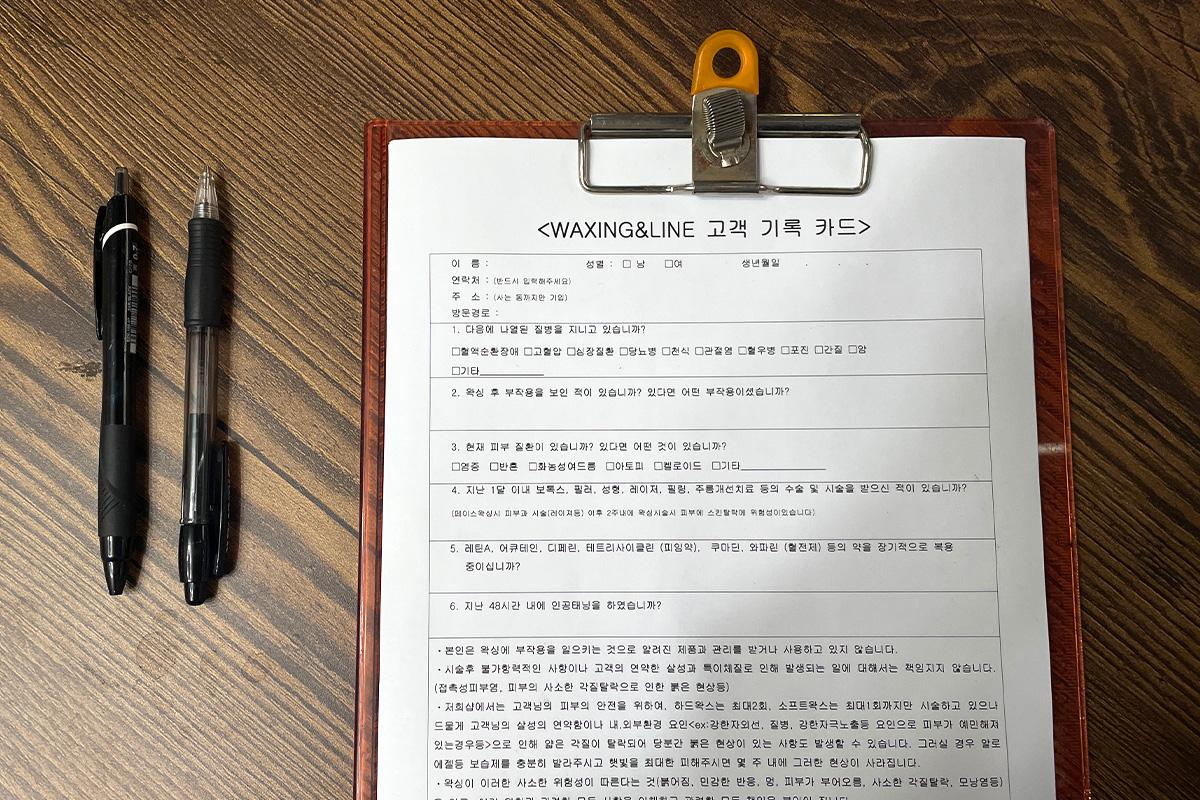 <WAXING&LINE 고객 기록 카드>
이 름 : 성별 : □ 남 □여 생년월일 . . .
연락처 : (반드시 입력해주세요)
주 소 : (사는 동까지만 기입)
방문경로 :
1. 다음에 나열된 질병을 지니고 있습니까?
□혈액순환장애 □고혈압 □심장질환 □당뇨병 □천식 □관절염 □혈우병 □포진 □간질 □암
□기타__________
2. 왁싱 후 부작용을 보인 적이 있습니까? 있다면 어떤 부작용이셨습니까?
3. 현재 피부 질환이 있습니까? 있다면 어떤 것이 있습니까?
□염증 □반흔 □화농성여드름 □아토피 □켈로이드 □기타______________
4. 지난 1달 이내 보톡스, 필러, 성형, 레이저, 필링, 주름개선치료 등의 수술 및 시술을 받으신 적이 있습니까?
(페이스왁싱시 피부과 시술(레이져등) 이후 2주내에 왁싱시술시 피부에 스킨탈락에 위험성이있습니다)
5. 레틴A, 어큐테인, 디페린, 테트리사이클린 (피임약), 쿠마딘, 와파린 (혈전제) 등의 약을 장기적으로 복용
중이십니까?
6. 지난 48시간 내에 인공태닝을 하였습니까?
·본인은 왁싱에 부작용을 일으키는 것으로 알려진 제품과 관리를 받거나 사용하고 있지 않습니다.
·시술후 불가항력적인 사항이나 고객의 연약한 살성과 특이체질로 인해 발생되는 일에 대해서는 책임지지 않습니다.
(접촉성피부염, 피부의 사소한 각질탈락으로 인한 붉은 현상등)
·저희샵에서는 고객님의 피부의 안전을 위하여, 하드왁스는 최대2회, 소프트왁스는 최대1회까지만 시술하고 있으나
드물게 고객님의 살성의 연약함이나 내.외부환경 요인<ex:강한자외선, 질병, 강한자극노출등 요인으로 피부가 예민해져
있는경우등>으로 인해 얇은 각질이 탈락되어 당분간 붉은 현상이 있는 사항도 발생할 수 있습니다. 그러실 경우 알로
에겔등 보습제를 충분히 발라주시고 햇빛을 최대한 피해주시면 몇 주 내에 그러한 현상이 사라집니다.
·왁싱이 이러한 사소한 위험성이 따른다는 것(붉어짐, 민감한 반응, 멍, 피부가 부어오름, 사소한 각질탈락, 모낭염등)
0.7